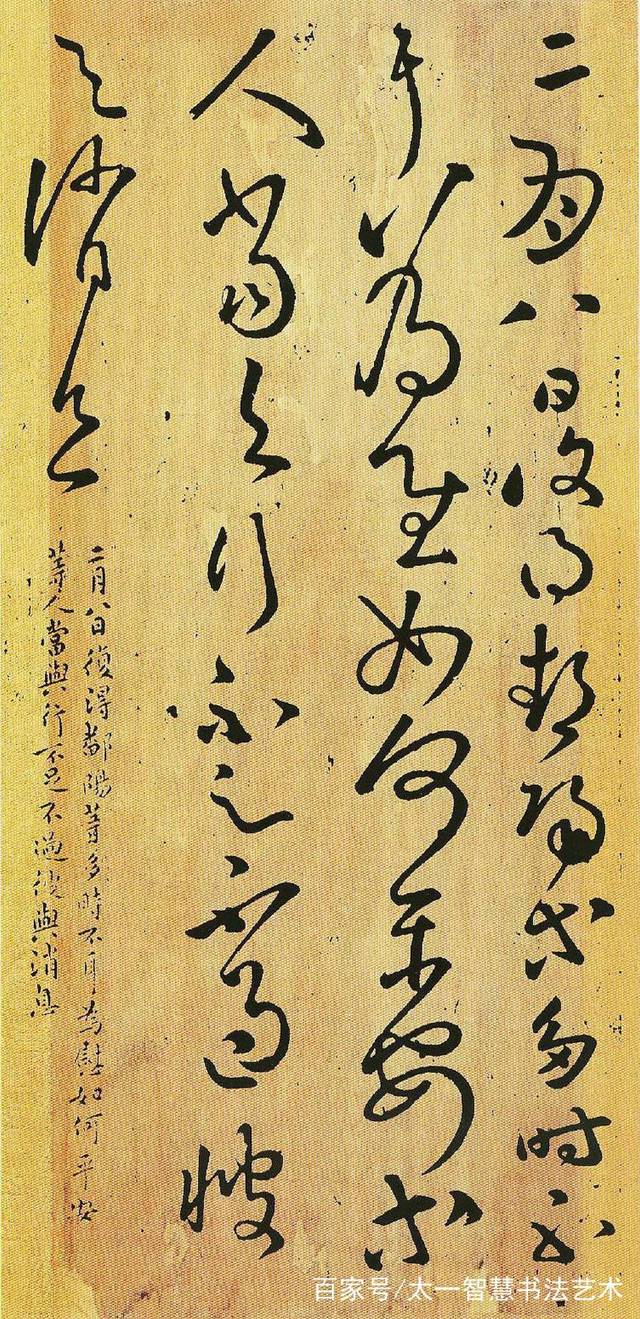 二月八日復得鄱陽等多時不
耳為慰如何平安等
人當與行不足不過彼
與消息
二月八日復得鄱陽等多時不耳為慰如何平安
等人當與行不足不過彼與消息
百家号/太一智慧书法艺术